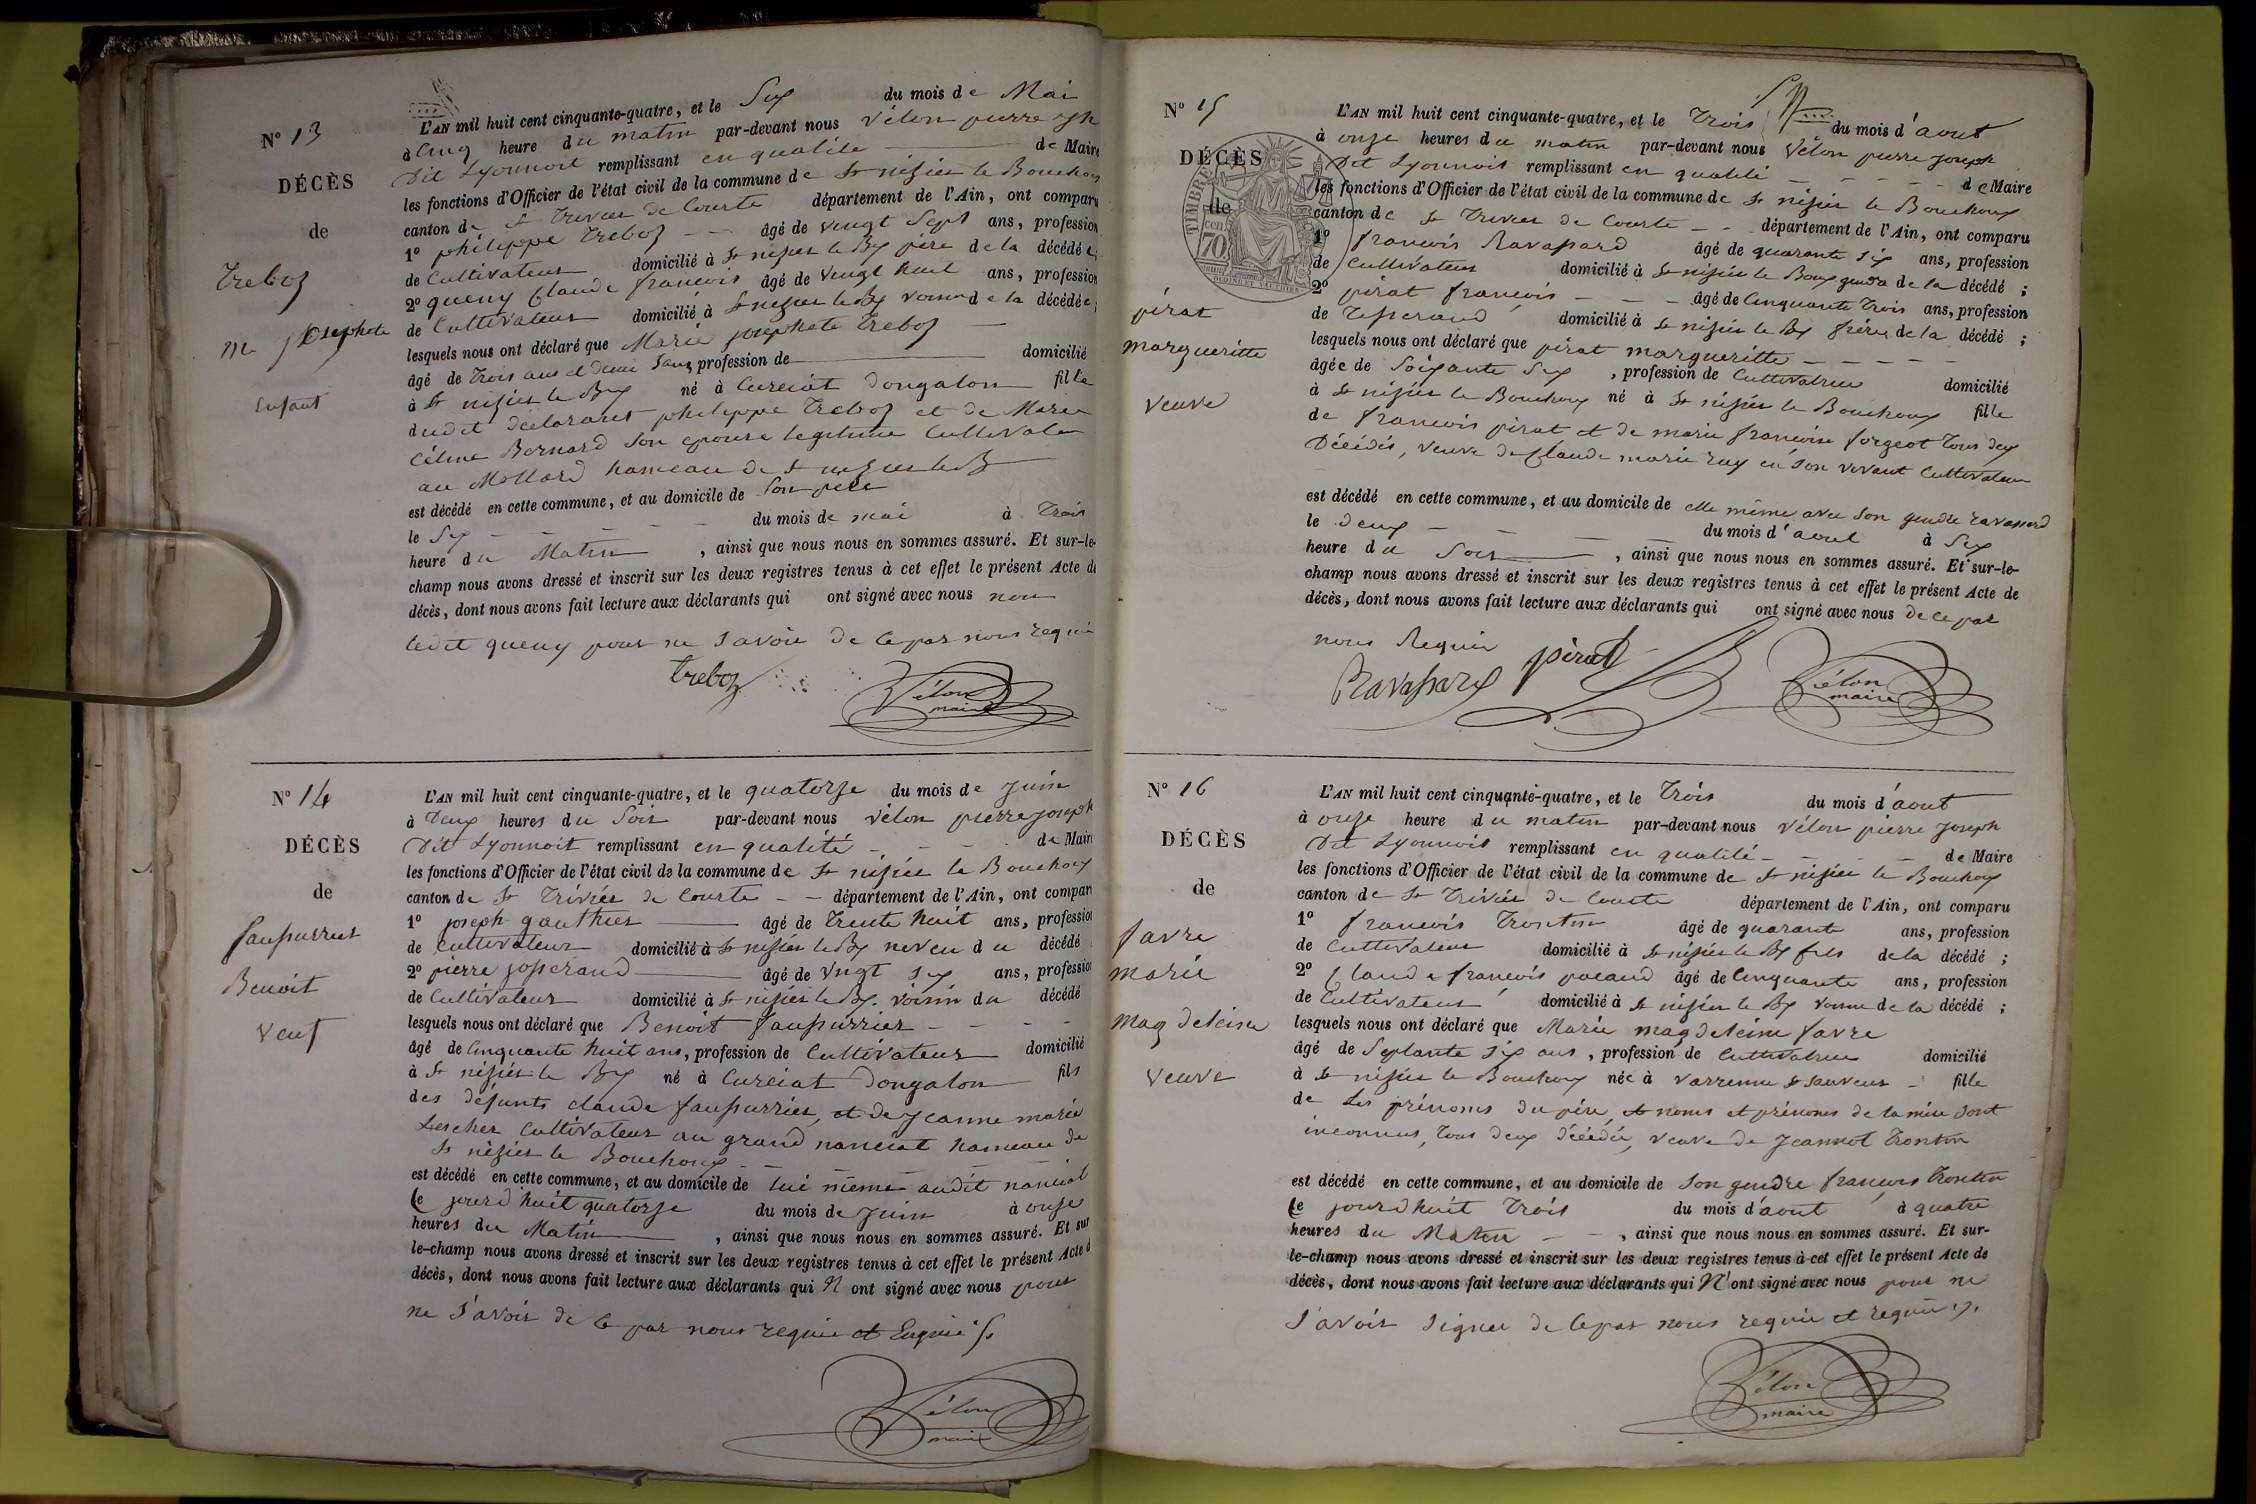 N° 13
DÉCÈS
de
Treboz
m josephete
Enfant
L'AN mil huit cent cinquante-quatre, et le Six du mois de Mai
à Cinq heure du matin par-devant nous Vélon pierre jph
Dit Lyonnoit remplissant en qualité de Maire
les fonctions d'Officier de l'état civil de la commune de St nizier le Bouchoux
canton de St Trivier de Courte département de l'Ain, ont comparu
1° philippe Treboz âgé de vingt Sept ans, profession
de Cultivateur domicilié à St nizier le Bx père de la décédée;
2° queny Claude francois âgé de vingt huit ans, profession
de Cultivateur domicilié à St nizier le Bx voisin de la décédée;
lesquels nous ont déclaré que Marie josephete Treboz
âgé de trois ans et demi Sans profession de domicilié
à St nizier le Bx né à Curciat Dongalon fille
dudit déclarant philippe Treboz et de Marie
Céline Bernard Son epouse legitime Cultivateur
au Mollard hameau de St nizier le B
est décédé en cette commune, et au domicile de Son père
le Six du mois de mai à Trois
heure du Matin, ainsi que nous nous en sommes assuré. Et sur-le-
champ nous avons dressé et inscrit sur les deux registres tenus à cet effet le présent Acte de
décès, dont nous avons fait lecture aux déclarants qui ont signé avec nous non
ledit queny pour ne Savoir de ce par nous requi
Treboz
Vélon
maire
N° 14
DÉCÈS
de
faussurrier
Benoit
Veuf
L'AN mil huit cent cinquante-quatre, et le quatorze du mois de Juin
à Deux heures du Soir par-devant nous Vélon pierre joseph
Dit Lyonnoit remplissant en qualité de Maire
les fonctions d'Officier de l'état civil de la commune de St nizier le Bouchoux
canton de St Trivier de Courte département de l'Ain, ont compar
1° joseph gauthier âgé de Trente huit ans, profession
de Cultivateur domicilié à St nizier le Bx neveu du décédé
2° pierre josserand âgé de Vingt Six ans, profession
de Cultivateur domicilié à St nizier le Bx voisin du décédé
lesquels nous ont déclaré que Benoit faussurrier
âgé de Cinquante huit ans, profession de Cultivateur domicilié
à St nizier le Bx né à Curciat Dongalon fils
des défunts claude faussurrier, et de Jeanne marie
Lescher Cultivateur au grand nanciat hameau de
St nizier le Bouchoux
est décédé en cette commune, et au domicile de lui même audit nanciat
Ce jourd'huit quatorze du mois de Juin à onze
heures du Matin, ainsi que nous nous en sommes assuré. Et sur
le-champ nous avons dressé et inscrit sur les deux registres tenus à cet effet le présent Acte d
décès, dont nous avons fait lecture aux déclarants qui N ont signé avec nous pour
ne Savoir de ce par nous requie et Enquié
Vélon
maire
N° 15
DÉCÈS
de
TIMBRE
70
pirat
margueritte
veuve
L'AN mil huit cent cinquante-quatre, et le Trois du mois d'aout
à onze heures du matin par-devant nous Vélon pierre joseph
Dit Lyonnoit remplissant en qualité de Maire
les fonctions d'Officier de l'état civil de la commune de St nizier le Bouchoux
canton de St Trivier de Courte département de l'Ain, ont comparu
1° francois Ravassard âgé de quarante Six ans, profession
de Cultivateur domicilié à St nizier le Boux gendre de la décédé;
2° pirat francois âgé de Cinquante Trois ans, profession
de Tisserand domicilié à St nizier le Bx frère de la décédé;
lesquels nous ont déclaré que pirat margueritte
âgée de Soixante Six, profession de Cultivatrice domicilié
à St nizier le Bouchoux né à St nizier le Bouchoux fille
de francois pirat et de marie francoise forgeot tous deux
Décédés, veuve de Claude marie ruy en Son vivant Cultivateur
est décédé en cette commune, et au domicile de elle même avec Son gendre ravassard
le deux du mois d'aout à Six
heure du Soir, ainsi que nous nous en sommes assuré. Et sur-le-
champ nous avons dressé et inscrit sur les deux registres tenus à cet effet le présent Acte de
décès, dont nous avons fait lecture aux déclarants qui ont signé avec nous de ce par
nous Requis
Ravassard pirat
Vélon
maire
N° 16
DÉCÈS
de
favre
marie
magdeleine
veuve
L'AN mil huit cent cinquante-quatre, et le Trois du mois d'aout
à onze heure du matin par-devant nous Vélon pierre joseph
Dit Lyonnoit remplissant en qualité de Maire
les fonctions d'Officier de l'état civil de la commune de St nizier le Bouchoux
canton de St Trivier de Courte département de l'Ain, ont comparu
1° francois Trontin âgé de quarante ans, profession
de Cultivateur domicilié à St nizier le Bx fils de la décédé;
2° Claude francois pacaud âgé de Cinquante ans, profession
de Cultivateur domicilié à St nizier le Bx voisin de la décédé;
lesquels nous ont déclaré que Marie magdeleine favre
âgé de Septante Six ans, profession de Cultivatrice domicilié
à St nizier le Bouchoux née à Varrenne St Sauveur fille
de Les prénoms du père, et noms et prénoms de la mère sont
inconnus, tous deux décédés, veuve de Jeannot Trontin
est décédé en cette commune, et au domicile de Son gendre francois Trontin
Ce jourd'huit Trois du mois d'aout à quatre
heures du Matin, ainsi que nous nous en sommes assuré. Et sur-
le-champ nous avons dressé et inscrit sur les deux registres tenus à cet effet le présent Acte de
décès, dont nous avons fait lecture aux déclarants qui N'ont signé avec nous pour ne
Savoir Signer de ce par nous requie et requie
Vélon
maire